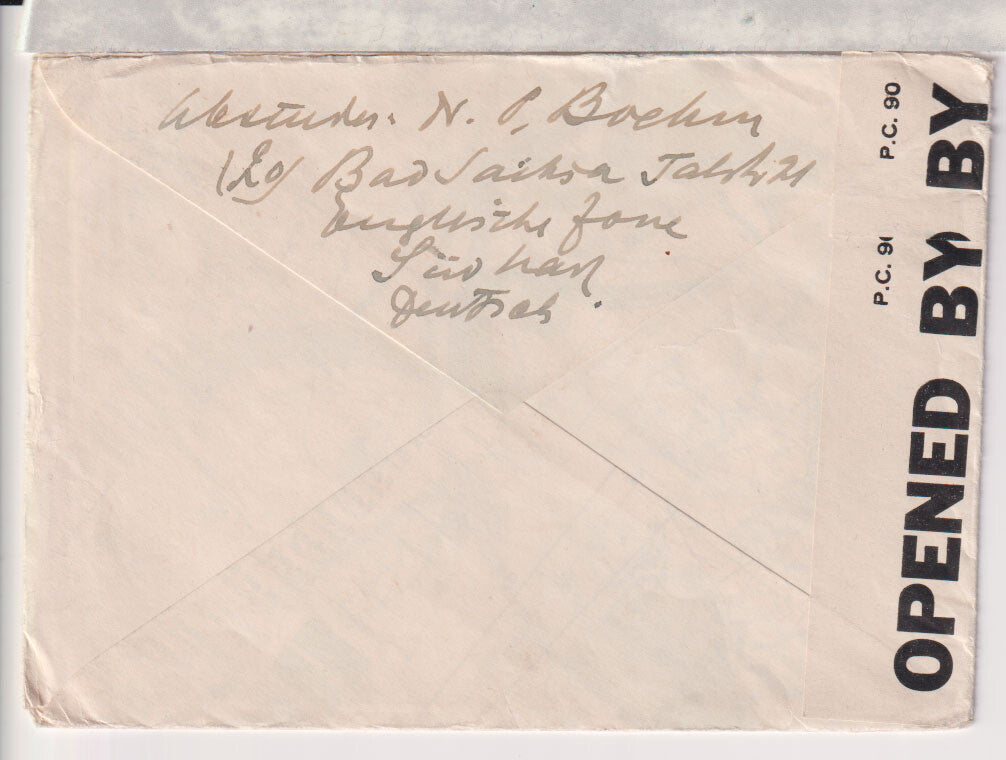 Absender: N. P. Boehm
(20) Bad Sachsa Talstr. 21
Englische Zone
Süd Harz
Deutsch.
P.C. 90
OPENED BY BY
P.C. 90